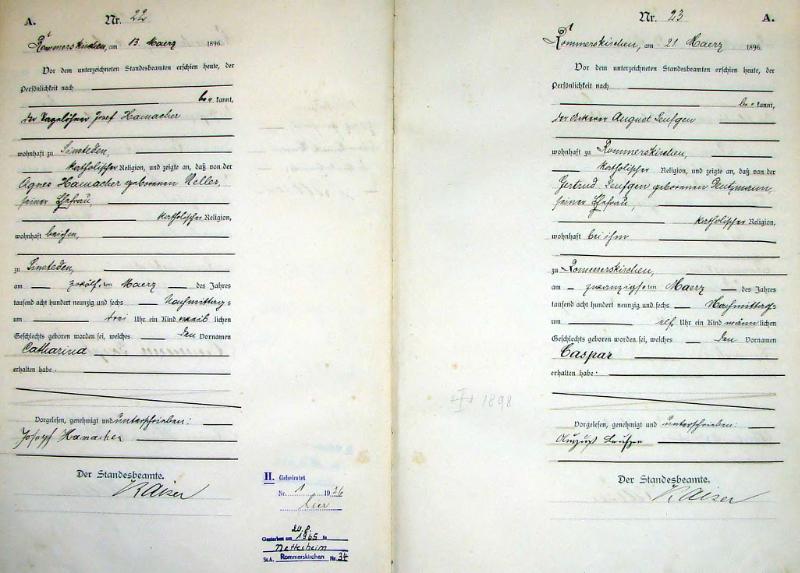 A.
Nr. 22
Rommerskirchen, am 13 Maerz 1896
Vor dem unterzeichneten Standesbeamten erschien heute, der
Persönlichkeit nach
be kannt,
der Tagelöhner Josef Hamacher
wohnhaft zu Sinsteden,
katholischer Religion, und zeigte an, daß von der
Agnes Hamacher geborenen Neller,
seiner Ehefrau,
katholischer Religion,
wohnhaft bei ihm,
zu Sinsteden,
am zwölften Maerz des Jahres
tausend acht hundert neunzig und sechs Nachmittags
um drei Uhr ein Kind weib lichen
Geschlechts geboren worden sei, welches den Vornamen
Catharina
erhalten habe.
Vorgelesen, genehmigt und unterschrieben:
Josef Hamacher
Der Standesbeamte.
Kaiser
II. Geheiratet
Nr. 1 1926
hier
Gestorben am 20.8. 1965 in
Nettesheim
St.A. Rommerskirchen Nr. 34
Nr. 23
A.
Rommerskirchen, am 21 Maerz 1896
Vor dem unterzeichneten Standesbeamten erschien heute, der
Persönlichkeit nach
be kannt,
der Ackerer August
wohnhaft zu Rommerskirchen,
katholischer Religion, und zeigte an, daß von der
Gertrud geborenen
seiner Ehefrau,
katholischer Religion,
wohnhaft bei ihm
zu Rommerskirchen,
am zwanzigsten Maerz des Jahres
tausend acht hundert neunzig und sechs Nachmittags
um elf Uhr ein Kind männ lichen
Geschlechts geboren worden sei, welches den Vornamen
Caspar
erhalten habe.
1898
Vorgelesen, genehmigt und unterschrieben:
August
Der Standesbeamte.
Kaiser